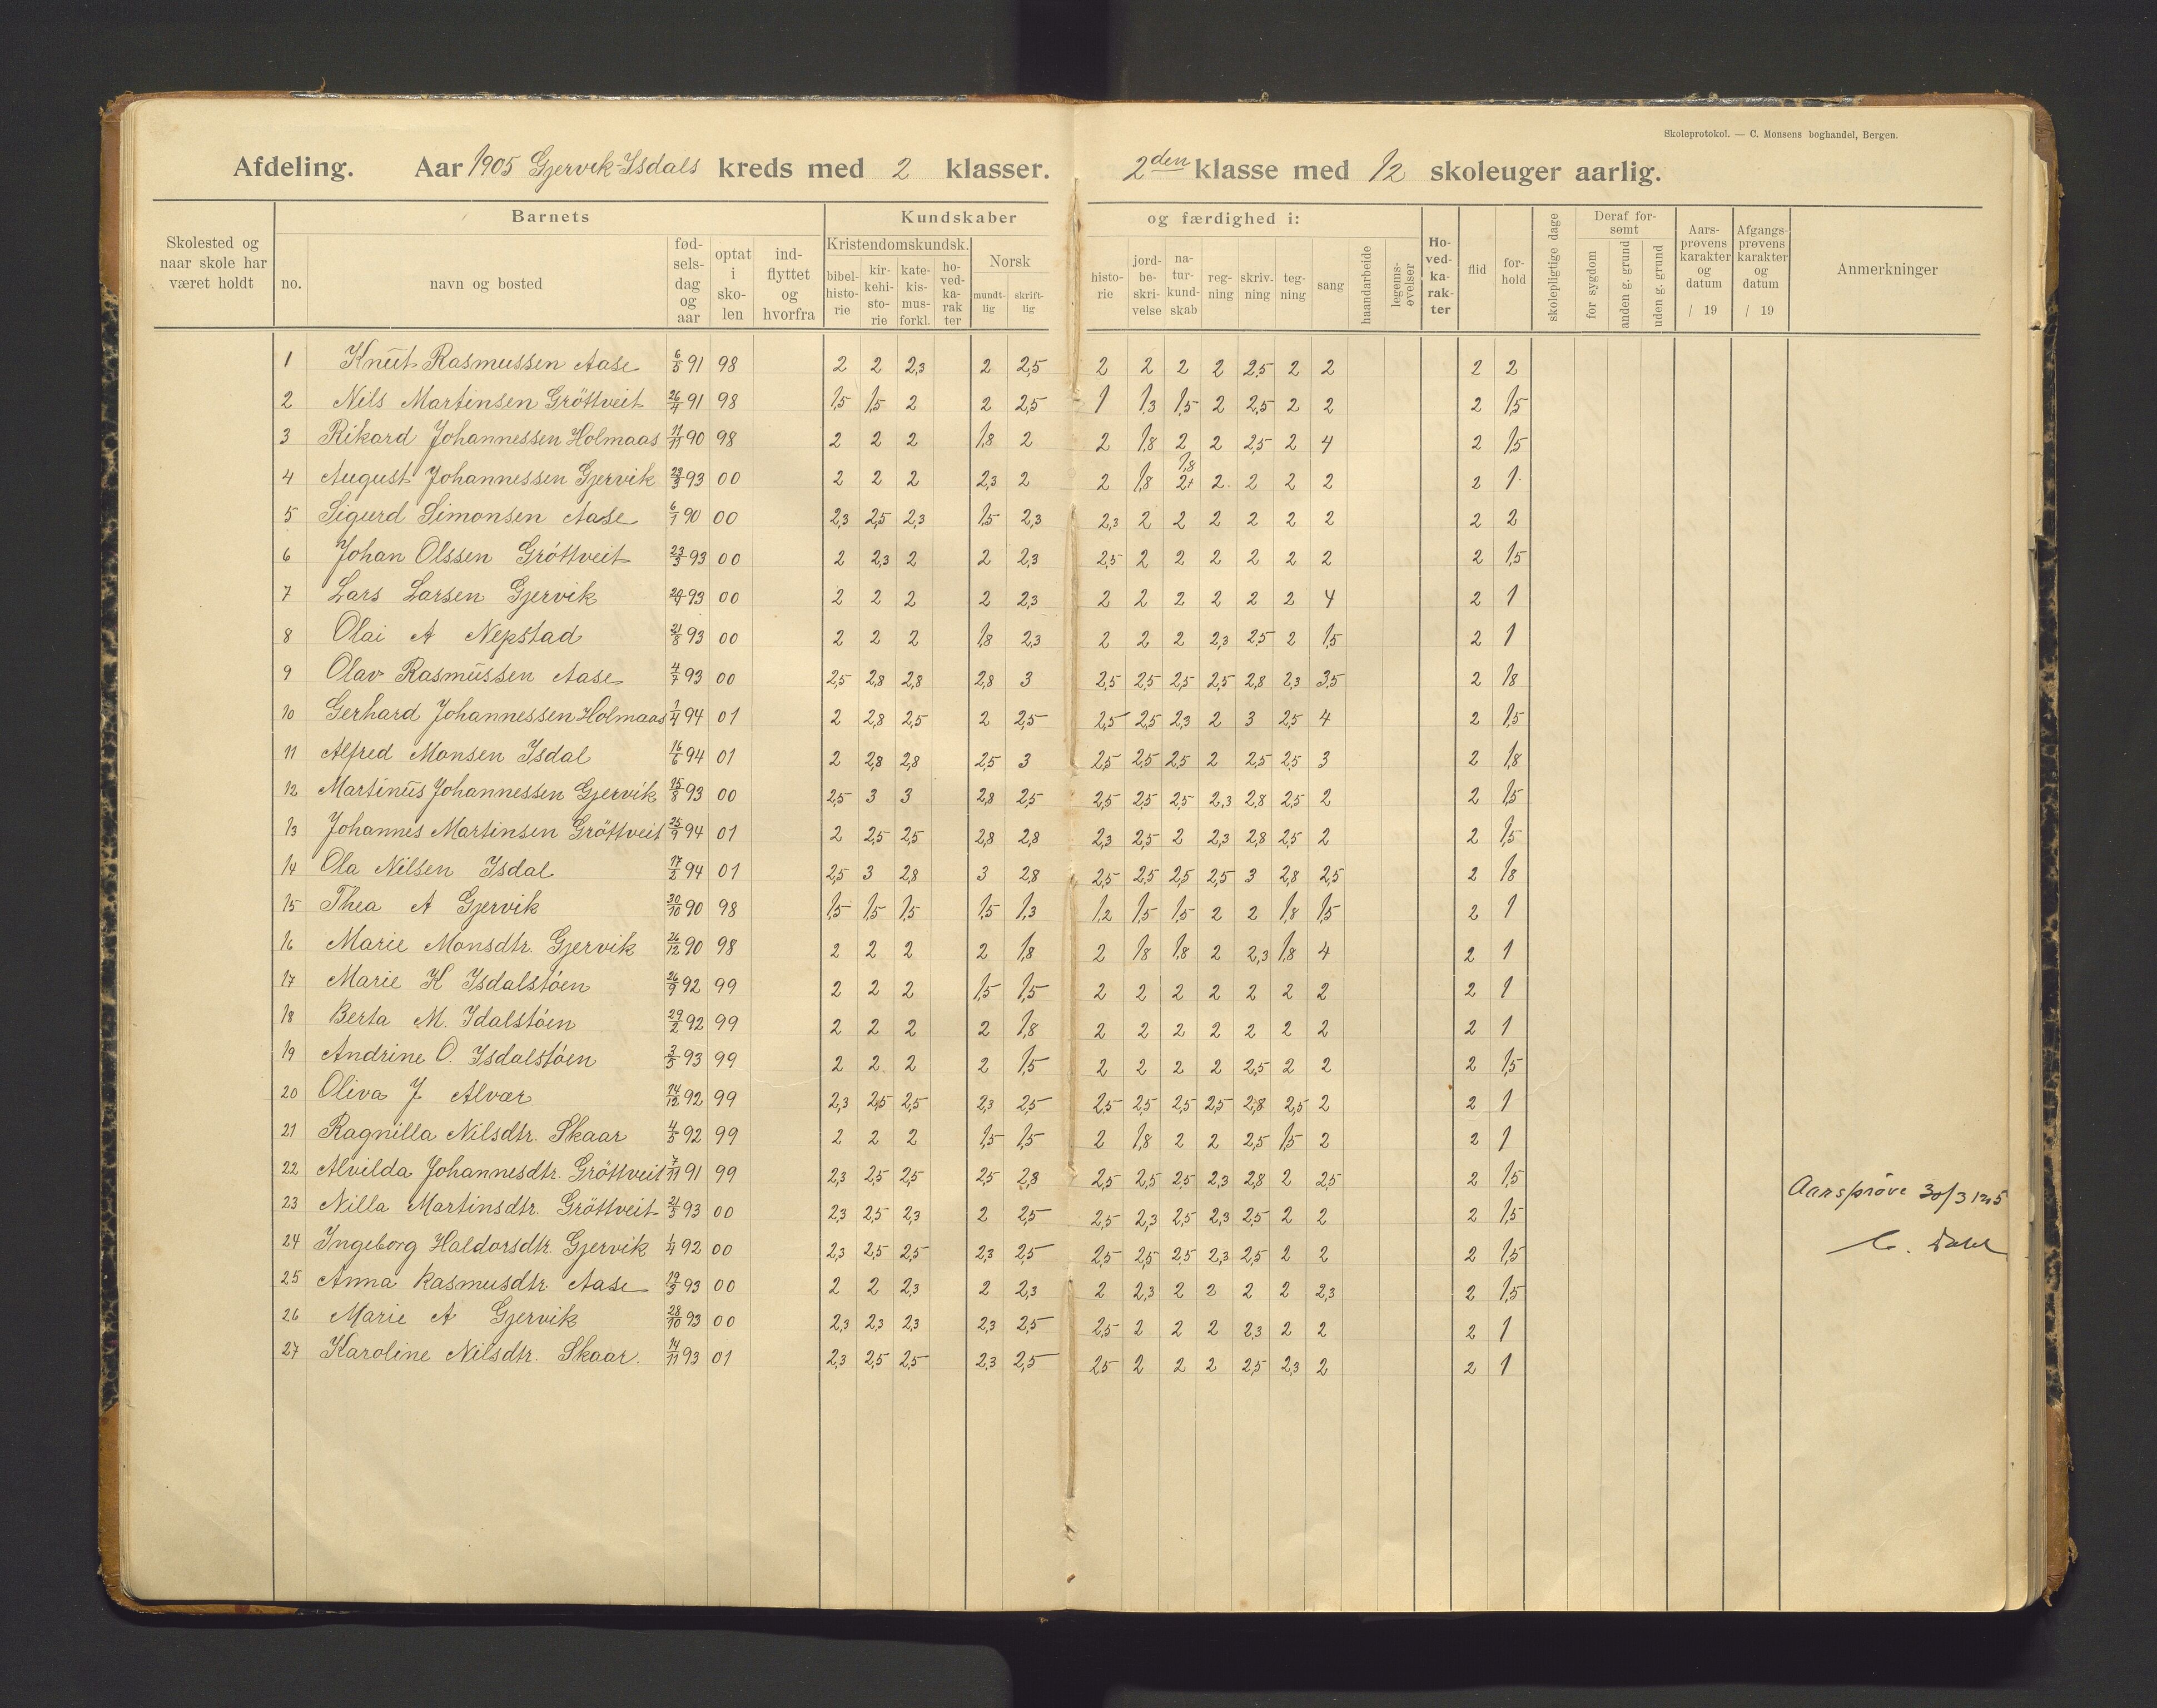 Skoleprotokol. — C. Monsens boghandel, Bergen.
Afdeling. Aar 1905 Gjervik-Isdals kreds med 2 klasser. 2den klasse med 12 skoleuger aarlig.
Skolested og naar skole har været holdt
Barnets
no.
navn og bosted
fød-sels-dag og aar
optat i sko-len
ind-flyttet og hvorfra
Kundskaber og færdighed i:
Kristendomskundsk.
bibel-histo-rie
kir-kehi-sto-rie
kate-kis-mus-forkl.
ho-ved-ka-rak ter
Norsk
mundt-lig
skrift-lig
histo-rie
jord-be-skri-velse
na-tur-kund-skab
reg-ning
skriv-ning
teg-ning
sang
haandarbeide
legems-øvelser
Ho-ved-ka-rak-ter
flid
for-hold
skolepligtige dage
Deraf for-sømt
for sygdom
anden g. grund
uden g. grund
Aars-prøvens karakter og datum / 19
Afgangs-prøvens karakter og datum / 19
Anmerkninger
1 Knut Rasmussen Aase 6/5 91 98 2 2 2,3 2 2,5 2 2 2 2 2,5 2 2 2 2
2 Nils Martinsen Gröttveit 26/4 91 98 1,5 1,5 2 2 2,5 1 1,3 1,5 2 2,5 2 2 2 1,5
3 Rikard Johannessen Holmaas 11/11 90 98 2 2 2 1,8 2 2 1,8 2 2 2,5 2 4 2 1,5
4 August Johannessen Gjervik 23/3 93 00 2 2 2 2,3 2 2 1,8 1,8 2+ 2 2 2 2 2 1
5 Sigurd Simonsen Aase 6/1 90 00 2,3 2,5 2,3 1,5 2,3 2,3 2 2 2 2 2 2 2 2
6 Johan Olssen Gröttveit 23/3 93 00 2 2,3 2 2 2,3 2,5 2 2 2 2 2 2 2 1,5
7 Lars Larsen Gjervik 93 00 2 2 2 2 2,3 2 2 2 2 2 2 4 2 1
8 Olai A Nepstad 21/8 93 00 2 2 2 1,8 2,3 2 2 2 2,3 2,5 2 1,5 2 1
9 Olav Rasmussen Aase 4/7 93 00 2,5 2,8 2,8 2,8 3 2,5 2,5 2,5 2,5 2,8 2,3 3,5 2 1,8
10 Gerhard Johannessen Holmaas 1/4 94 01 2 2,8 2,5 2 2,5 2,5 2,5 2,3 2 3 2,5 4 2 1,5
11 Alfred Monsen Isdal 16/6 94 01 2 2,8 2,8 2,5 3 2,5 2,5 2,5 2 2,5 2,5 3 2 1,8
12 Martinus Johannessen Gjervik 15/8 93 00 2,5 3 3 2,8 2,5 2,5 2,5 2,5 2,3 2,8 2,5 2 2 1,5
13 Johannes Martinsen Gröttveit 25/9 94 01 2 2,5 2,5 2,8 2,8 2,3 2,5 2 2,3 2,8 2,5 2 2 1,5
14 Ola Nilsen Isdal 17/2 94 01 2,5 3 2,8 3 2,8 2,5 2,5 2,5 2,5 3 2,8 2,5 2 1,8
15 Thea A Gjervik 30/10 90 98 1,5 1,5 1,5 1,5 1,3 1,2 1,5 1,5 2 2 1,8 1,5 2 1
16 Marie Monsdtr. Gjervik 26/12 90 98 2 2 2 2 1,8 2 1,8 1,8 2 2,3 1,8 4 2 1
17 Marie K Isdalstöen 26/9 92 99 2 2 2 1,5 1,5 2 2 2 2 2 2 2 2 1
18 Berta M. Idalstöen 29/2 92 99 2 2 2 2 1,8 2 2 2 2 2 2 2 2 1
19 Andrine O. Isdalstöen 3/5 93 99 2 2 2 2 1,5 2 2 2 2 2,5 2 2 2 1,5
20 Oliva J Alvær 14/12 92 99 2,3 2,5 2,5 2,3 2,5 2,5 2,5 2,5 2,5 2,8 2,5 2 2 1
21 Ragnilla Nilsdtr. Skaar 4/5 92 99 2 2 2 1,5 1,5 2 1,8 2 2 2,5 1,5 2 2 1
22 Alvilda Johannesdtr. Gröttveit 7/11 91 99 2,3 2,5 2,5 2,5 2,8 2,5 2,5 2,5 2,3 2,8 2 2,5 2 1,5
Aarsprøve 30/3 1905
23 Nilla Martinsdtr. Gröttveit 21/5 93 00 2,3 2,5 2,3 2 2,5 2,5 2,3 2,5 2,3 2,5 2 2 2 1,5
24 Ingeborg Haldorsdtr. Gjervik 1/4 92 00 2,3 2,5 2,5 2,3 2,5 2,5 2,5 2,5 2,3 2,5 2 2 2 1,5
25 Anna Rasmusdtr. Aase 19/3 93 00 2 2 2,3 2 2,3 2 2,3 2 2 2 2 2,3 2 1,5
26 Marie A Gjervik 28/10 93 00 2,3 2,3 2,3 2,3 2,5 2,5 2 2 2 2,3 2 2 2 1
27 Karoline Nilsdtr. Skaar. 14/11 93 01 2,3 2,5 2,5 2,3 2,5 2,5 2 2 2 2,5 2,3 2 2 1